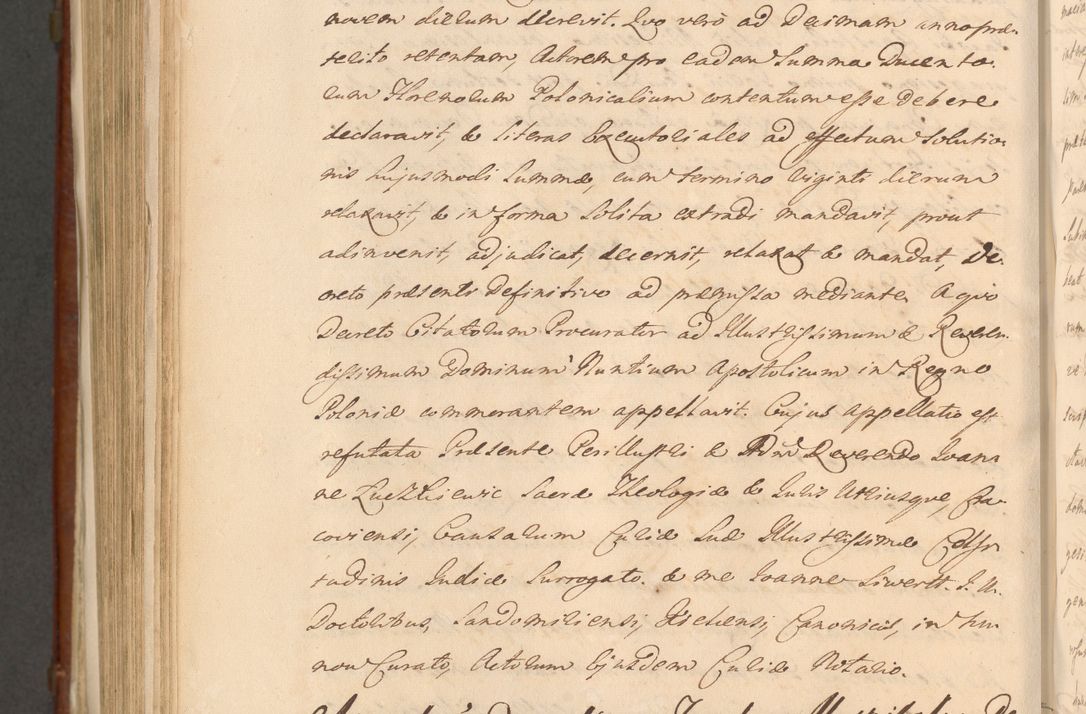 novem dierum decrevit. Quo verò ad Decimam anno præ-
terito retentam, Actorem pro eadem Summa Ducento-
rum Florenorum Polonicalium contentum esse debere
declaravit, & literas Executoriales ad effectum Solutio-
nis hujusmodi Summæ, cum termino Viginti dierum
relaxavit, & in forma Solita extradi mandavit, prout
adinvenit, adjudicat, decernit, relaxat & mandat, De-
creto præsenti Definitivo ad præmissa mediante. A quo
Decreto Citatorum Procurator ad Illustrissimum & Reveren-
dissimum Dominum Nuntium Apostolicum in Regno
Poloniæ commorantem appellavit. Cujus Appellatio est
refutata Præsente Perillustri & Adm Reverendo Joan-
ne Łuczkiewic Sacræ Theologiæ & Juris Utriusque, Cra-
coviensi, Causarum Curiæ Suæ Illustrissimæ Celsi-
tudinis Judice Surrogato. & me Joanne Siwertt. J. U.
Doctoribus, Sandomiriensi, Kielcensi, Canonicis, in
now Curato, Actorum Ejusdem Curiæ Notario.